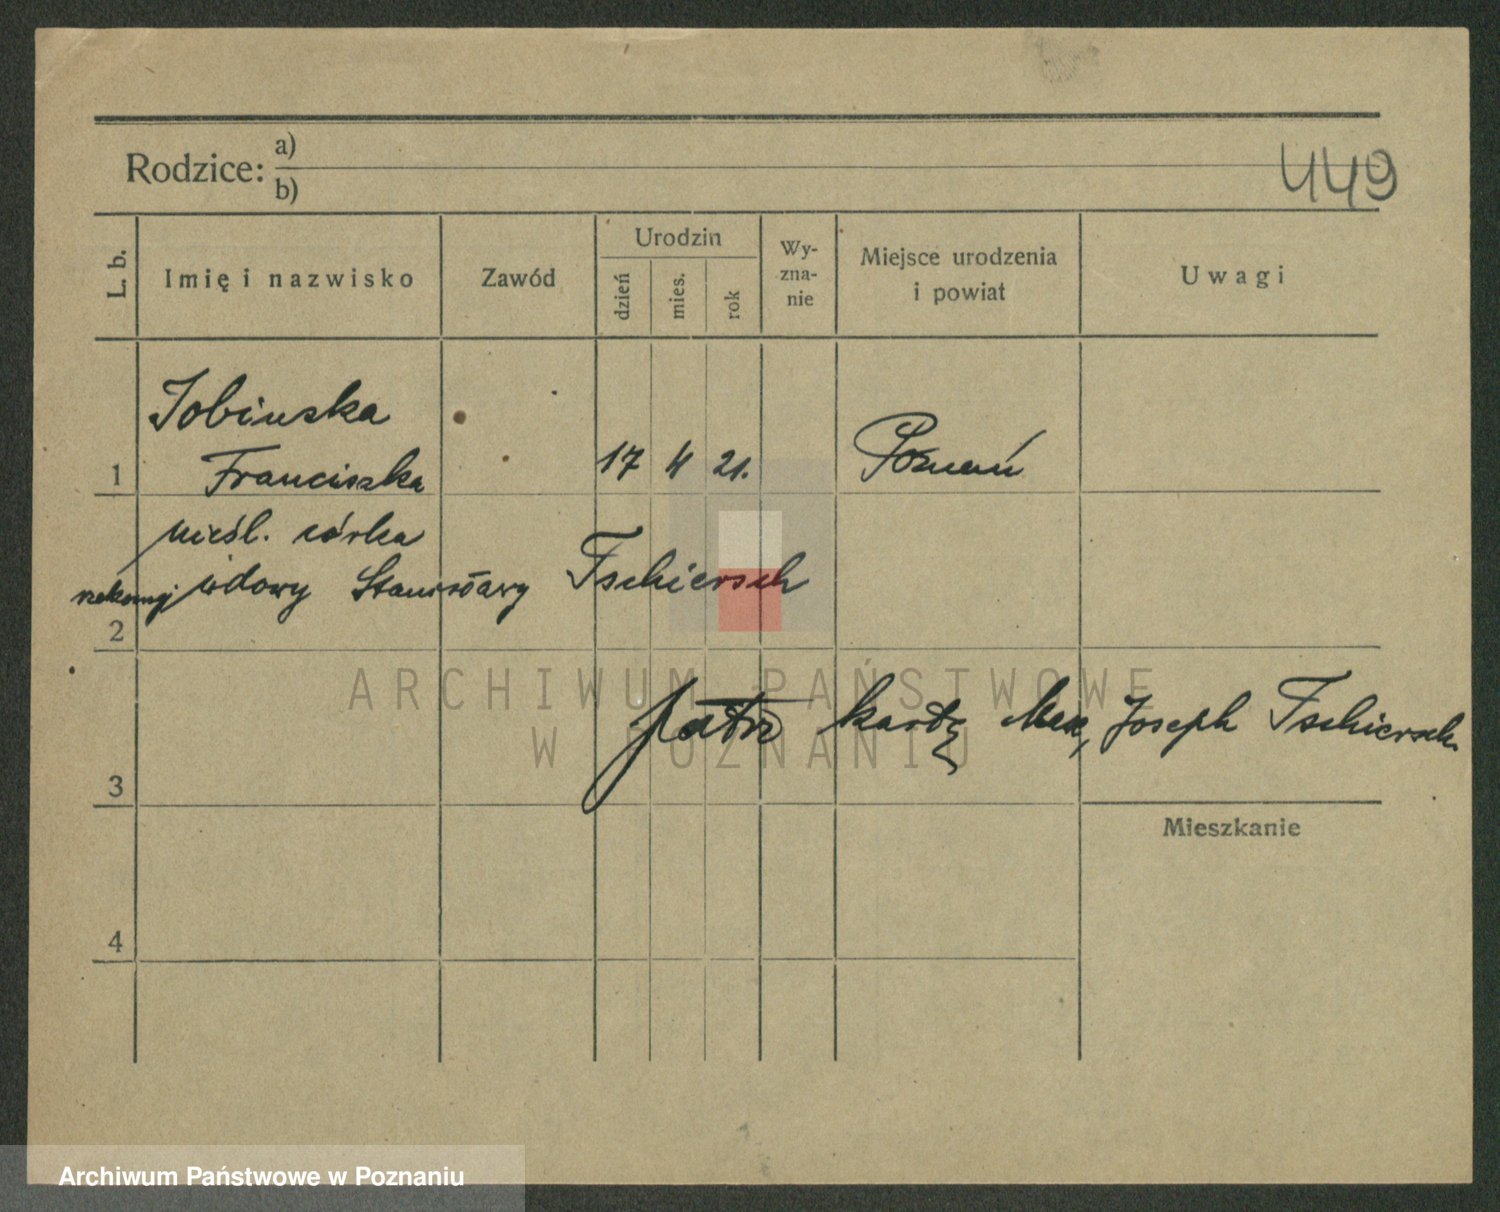 449
Rodzice: a)
b)
L. b.
Imię i nazwisko
Zawód
Urodzin
dzień
mies.
rok
Wy-
zna-
nie
Miejsce urodzenia
i powiat
Uwagi
Franciszka
1
17 4 21. Poznań
nieśl. córka
wdowy Stanisławy Tschiersch
2
patrz kartę Max, Joseph Tschiersch.
3
Mieszkanie
4
ARCHIWUM PAŃSTWOWE
W POZNANIU
Archiwum Państwowe w Poznaniu